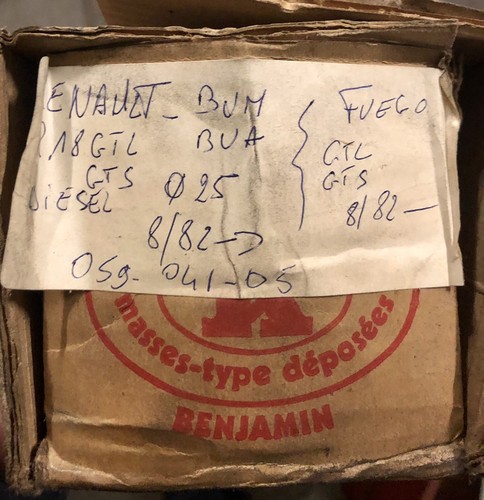 ENAULT_ BUM
R18 GTL BUA
GTS Ø 25
DIESEL
8/82 →
059-041-05
FUEGO
GTL
GTS
8/82 —
masses-type déposées
BENJAMIN